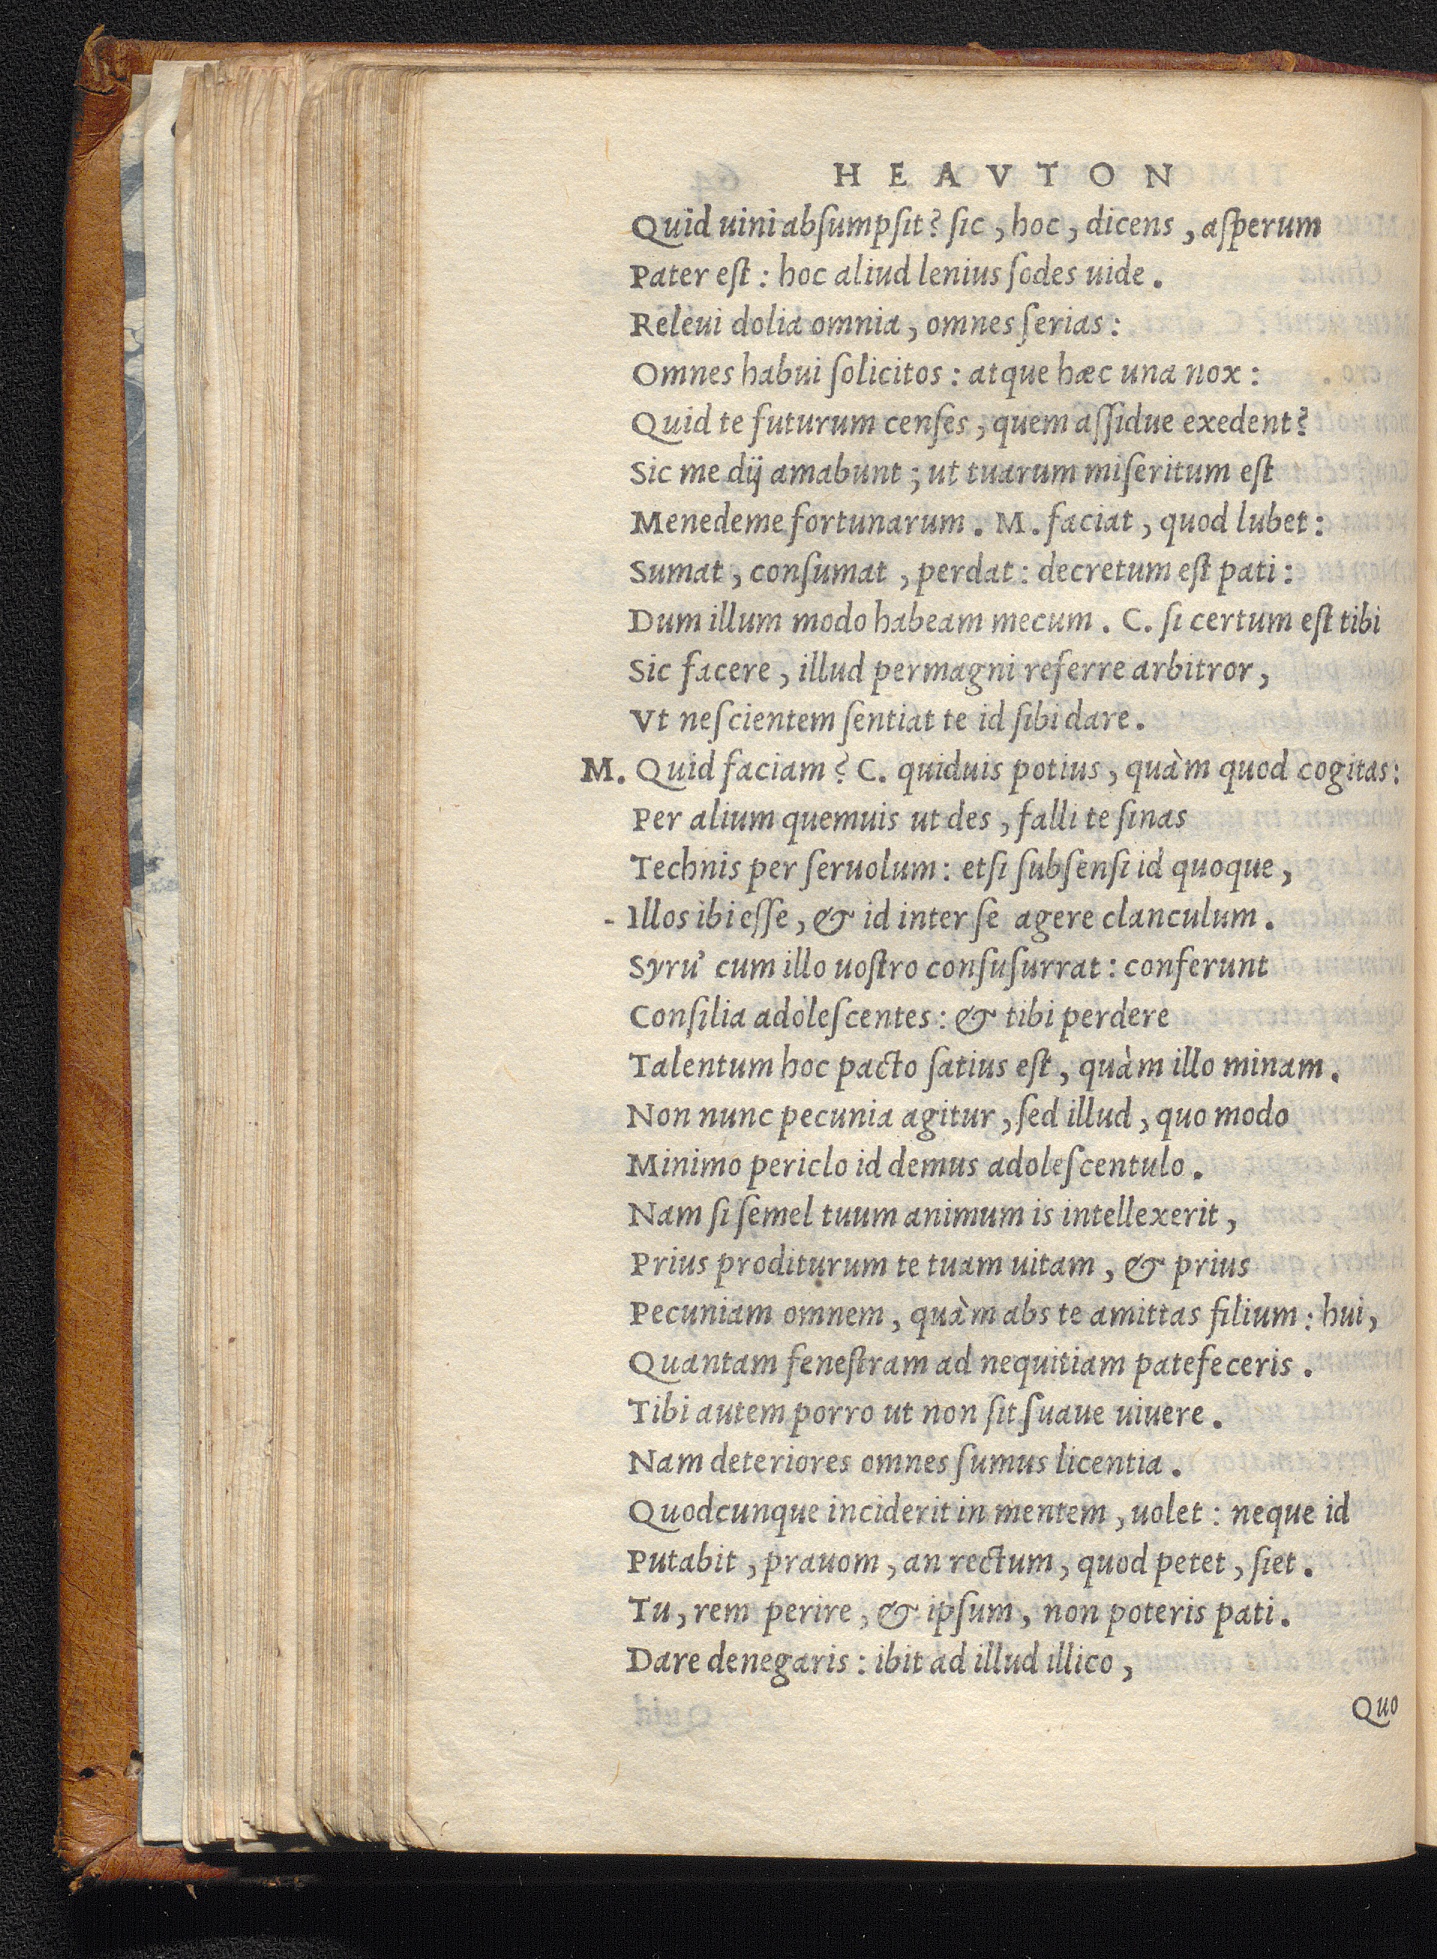 HEAVTON
Quid uini absumpsit? sic, hoc, dicens, asperum
Pater est: hoc aliud lenius sodes uide.
Releui dolia omnia, omnes serias:
Omnes habui solicitos: atque hæc una nox:
Quid te futurum censes, quem assidue exedent?
Sic me dij amabunt; ut tuarum miseritum est
Menedeme fortunarum. M. faciat, quod lubet:
Sumat, consumat, perdat: decretum est pati:
Dum illum modo habeam mecum. C. si certum est tibi
Sic facere, illud permagni referre arbitror,
Vt nescientem sentiat te id sibi dare.
M. Quid faciam? C. quiduis potius, quàm quod cogitas:
Per alium quemuis ut des, falli te sinas
Technis per seruolum: etsi subsensi id quoque,
- Illos ibi esse, & id inter se agere clanculum.
Syru' cum illo uostro consusurrat: conferunt
Consilia adolescentes: & tibi perdere
Talentum hoc pacto satius est, quàm illo minam.
Non nunc pecunia agitur, sed illud, quo modo
Minimo periclo id demus adolescentulo.
Nam si semel tuum animum is intellexerit,
Prius proditurum te tuam uitam, & prius
Pecuniam omnem, quàm abs te amittas filium: hui,
Quantam fenestram ad nequitiam patefeceris.
Tibi autem porro ut non sit suaue uiuere.
Nam deteriores omnes sumus licentia.
Quodcunque inciderit in mentem, uolet: neque id
Putabit, prauom, an rectum, quod petet, siet.
Tu, rem perire, & ipsum, non poteris pati.
Dare denegaris: ibit ad illud illico,
Quo